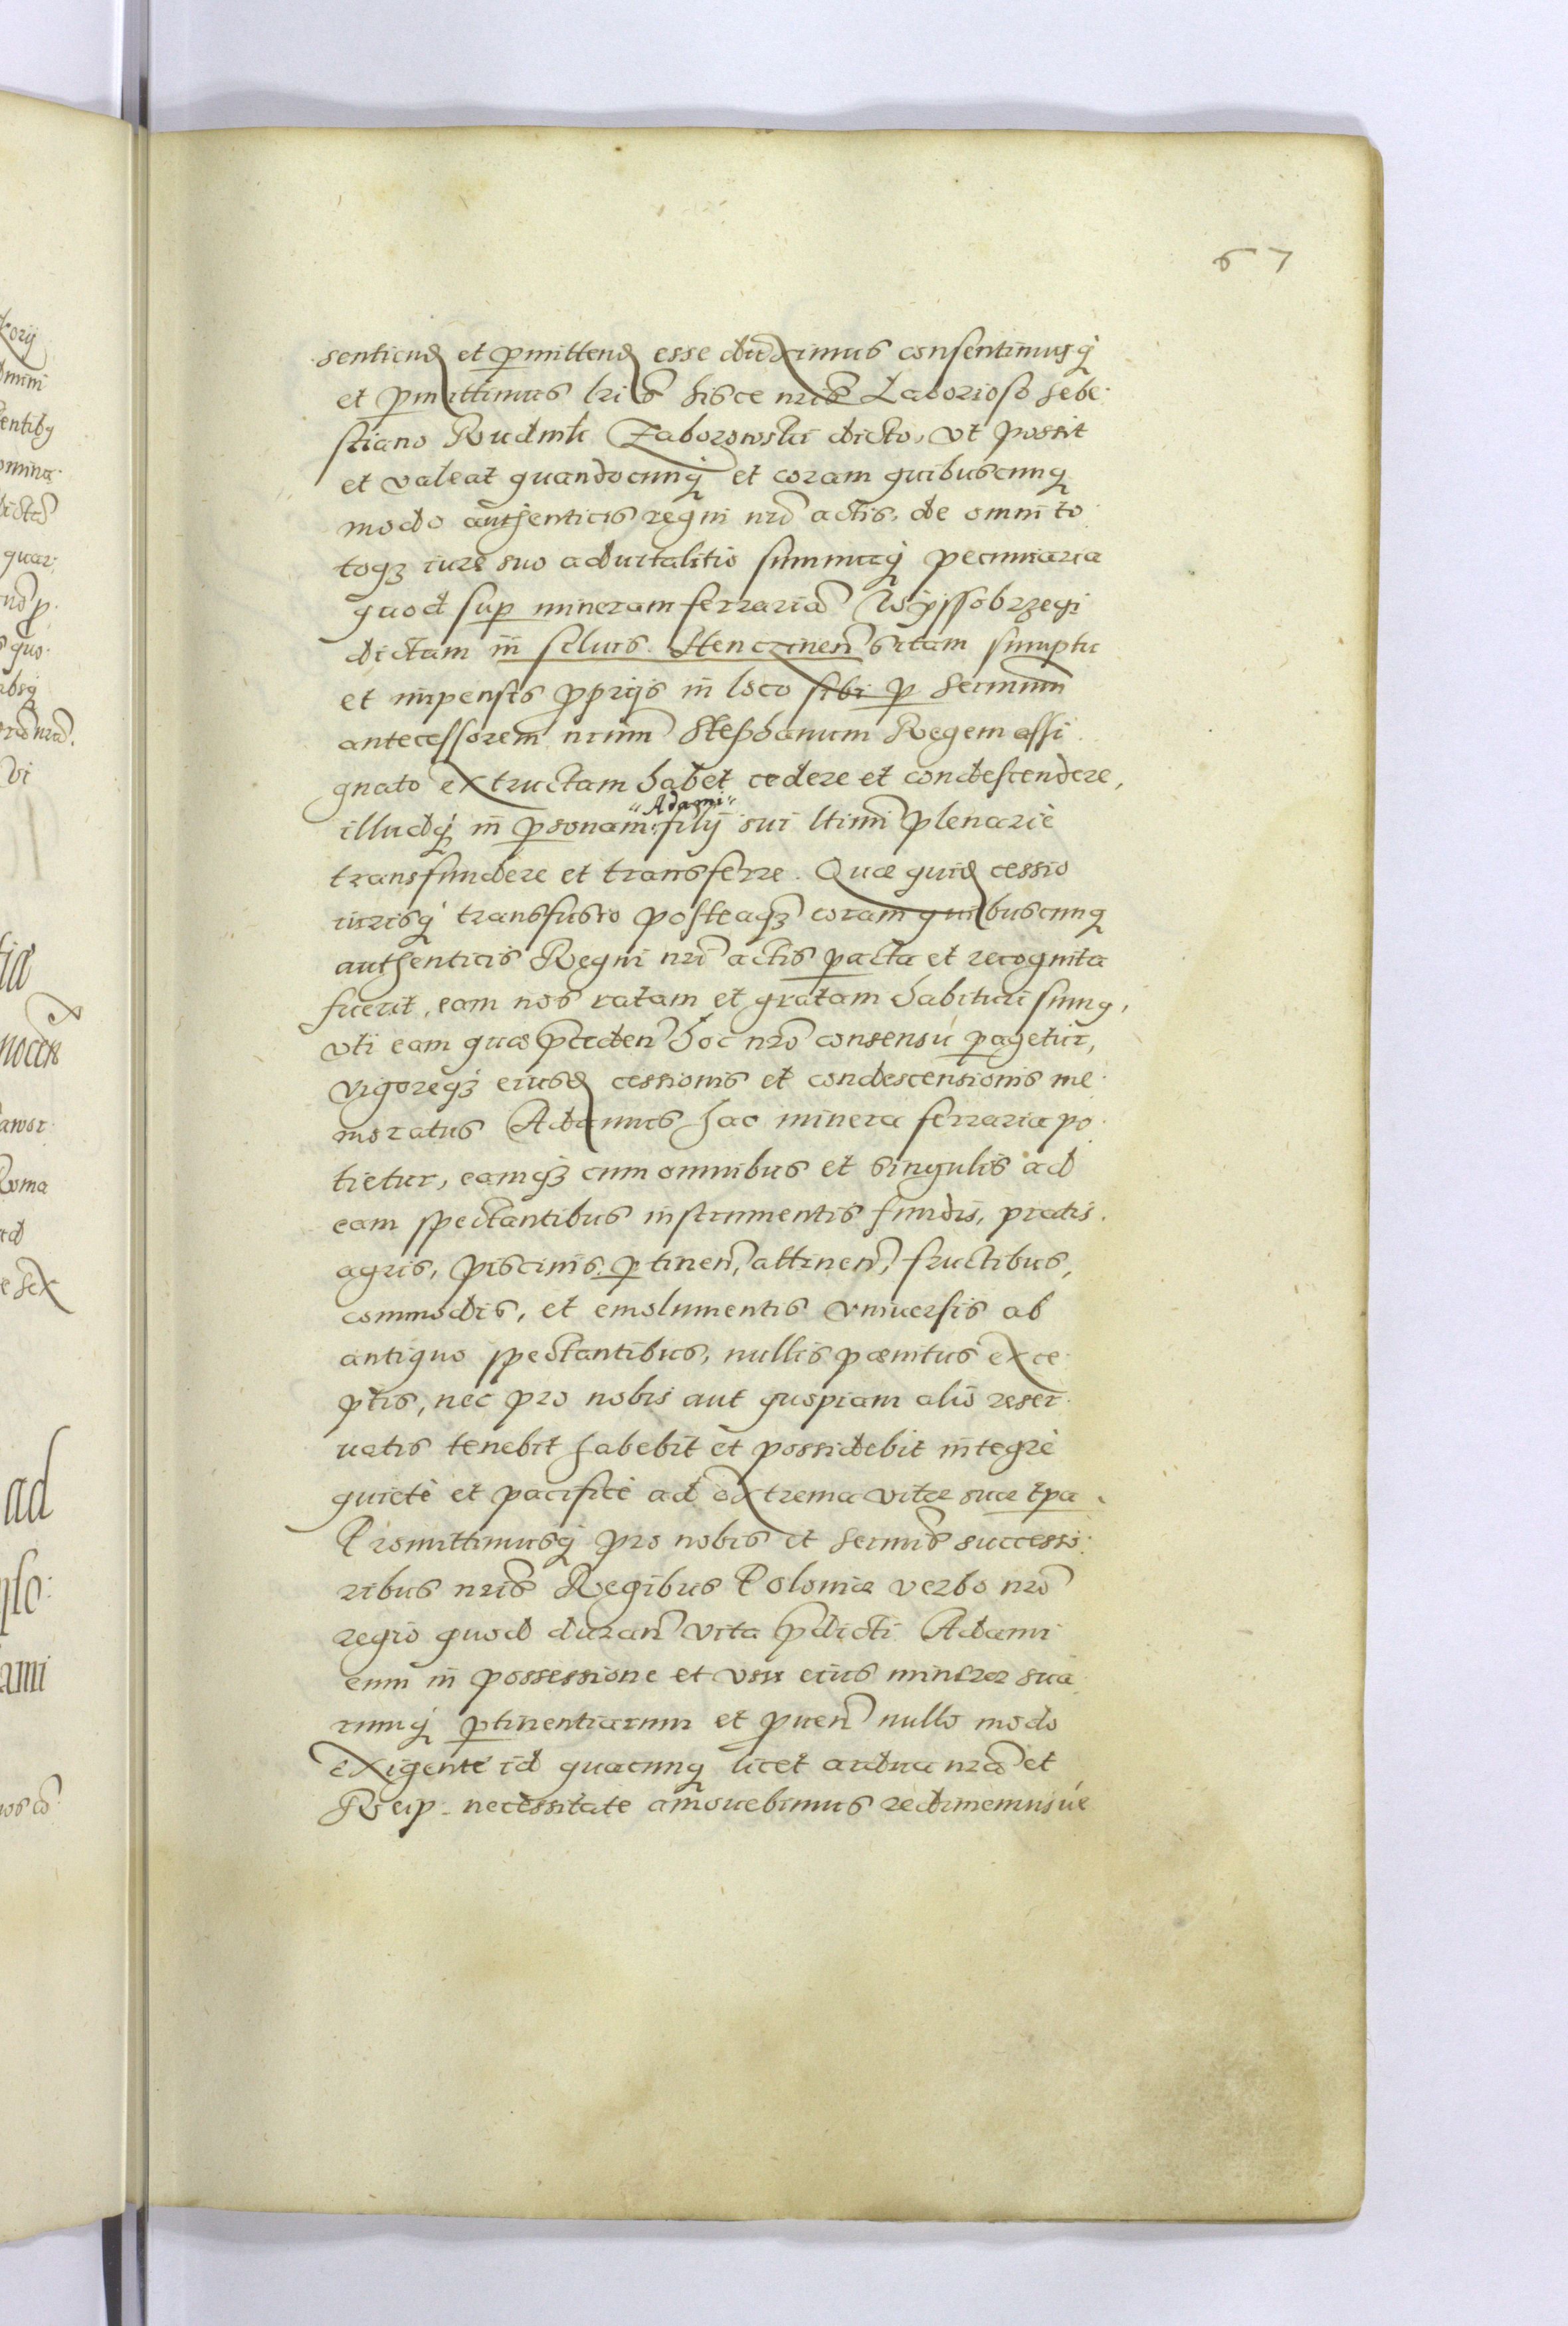 67
sentiend et pmittend esse duximus consentimusq
et pmittimus lris hisce nris Laborioso Sebe
stiano Rudnik Zaborowski dicto, vt possit
et valeat quandocunq et coram quibuscunq
modo authenticis regni nri actis, de omni to
toqz iure suo aduitalitio summaq pecuniaria
quod sup mineram ferraria Wÿssobrzegi
dictam in siluis Stenczinen sitam sumptu
et impensis proprijs in loco sibi p Sermum
antecessorem nrum Stephanum Regem assi
gnato extructam habet cedere et condescendere,
"Adami"
illudq in psonam filij sui ltimi plenariè
transfundere et transferre. Quæ quid cessio
iurisq transfusio posteaqz coram quibuscunq
authenticis Regni nri actis pacta et recognita
fuerit, eam nos ratam et gratam habituri sumq,
vti eam quæ pcedен hoc nro consensu pagetur,
vigoreqz eiusd cessionis et condescensionis me
moratus Adamus hac minera ferraria po
tietur, eamqz cum omnibus et singulis ad
eam spectantibus instrumentis fundis, pratis.
agris, piscinis, ptinen, attinen, fructibus,
commodis, et emolumentis vniuersis ab
antiquo spectantibus, nullis pænitus exce
ptis, nec pro nobis aut quopiam alio reser
uatis tenebit habebit et possidebit integrè
quietè et pacificè ad extrema vitæ suæ tpa.
Promittimusq pro nobis et Sermis successo
ribus nris Regibus Poloniæ verbo nro
regio quod duran vita pdicti Adami
eum in possessione et vsu eius mineræ sua
rumq ptinentiarum et puen nullo modo
exigente id quacunq licet ardua nra et
Reip. necessitate amouebimus redimemusúe